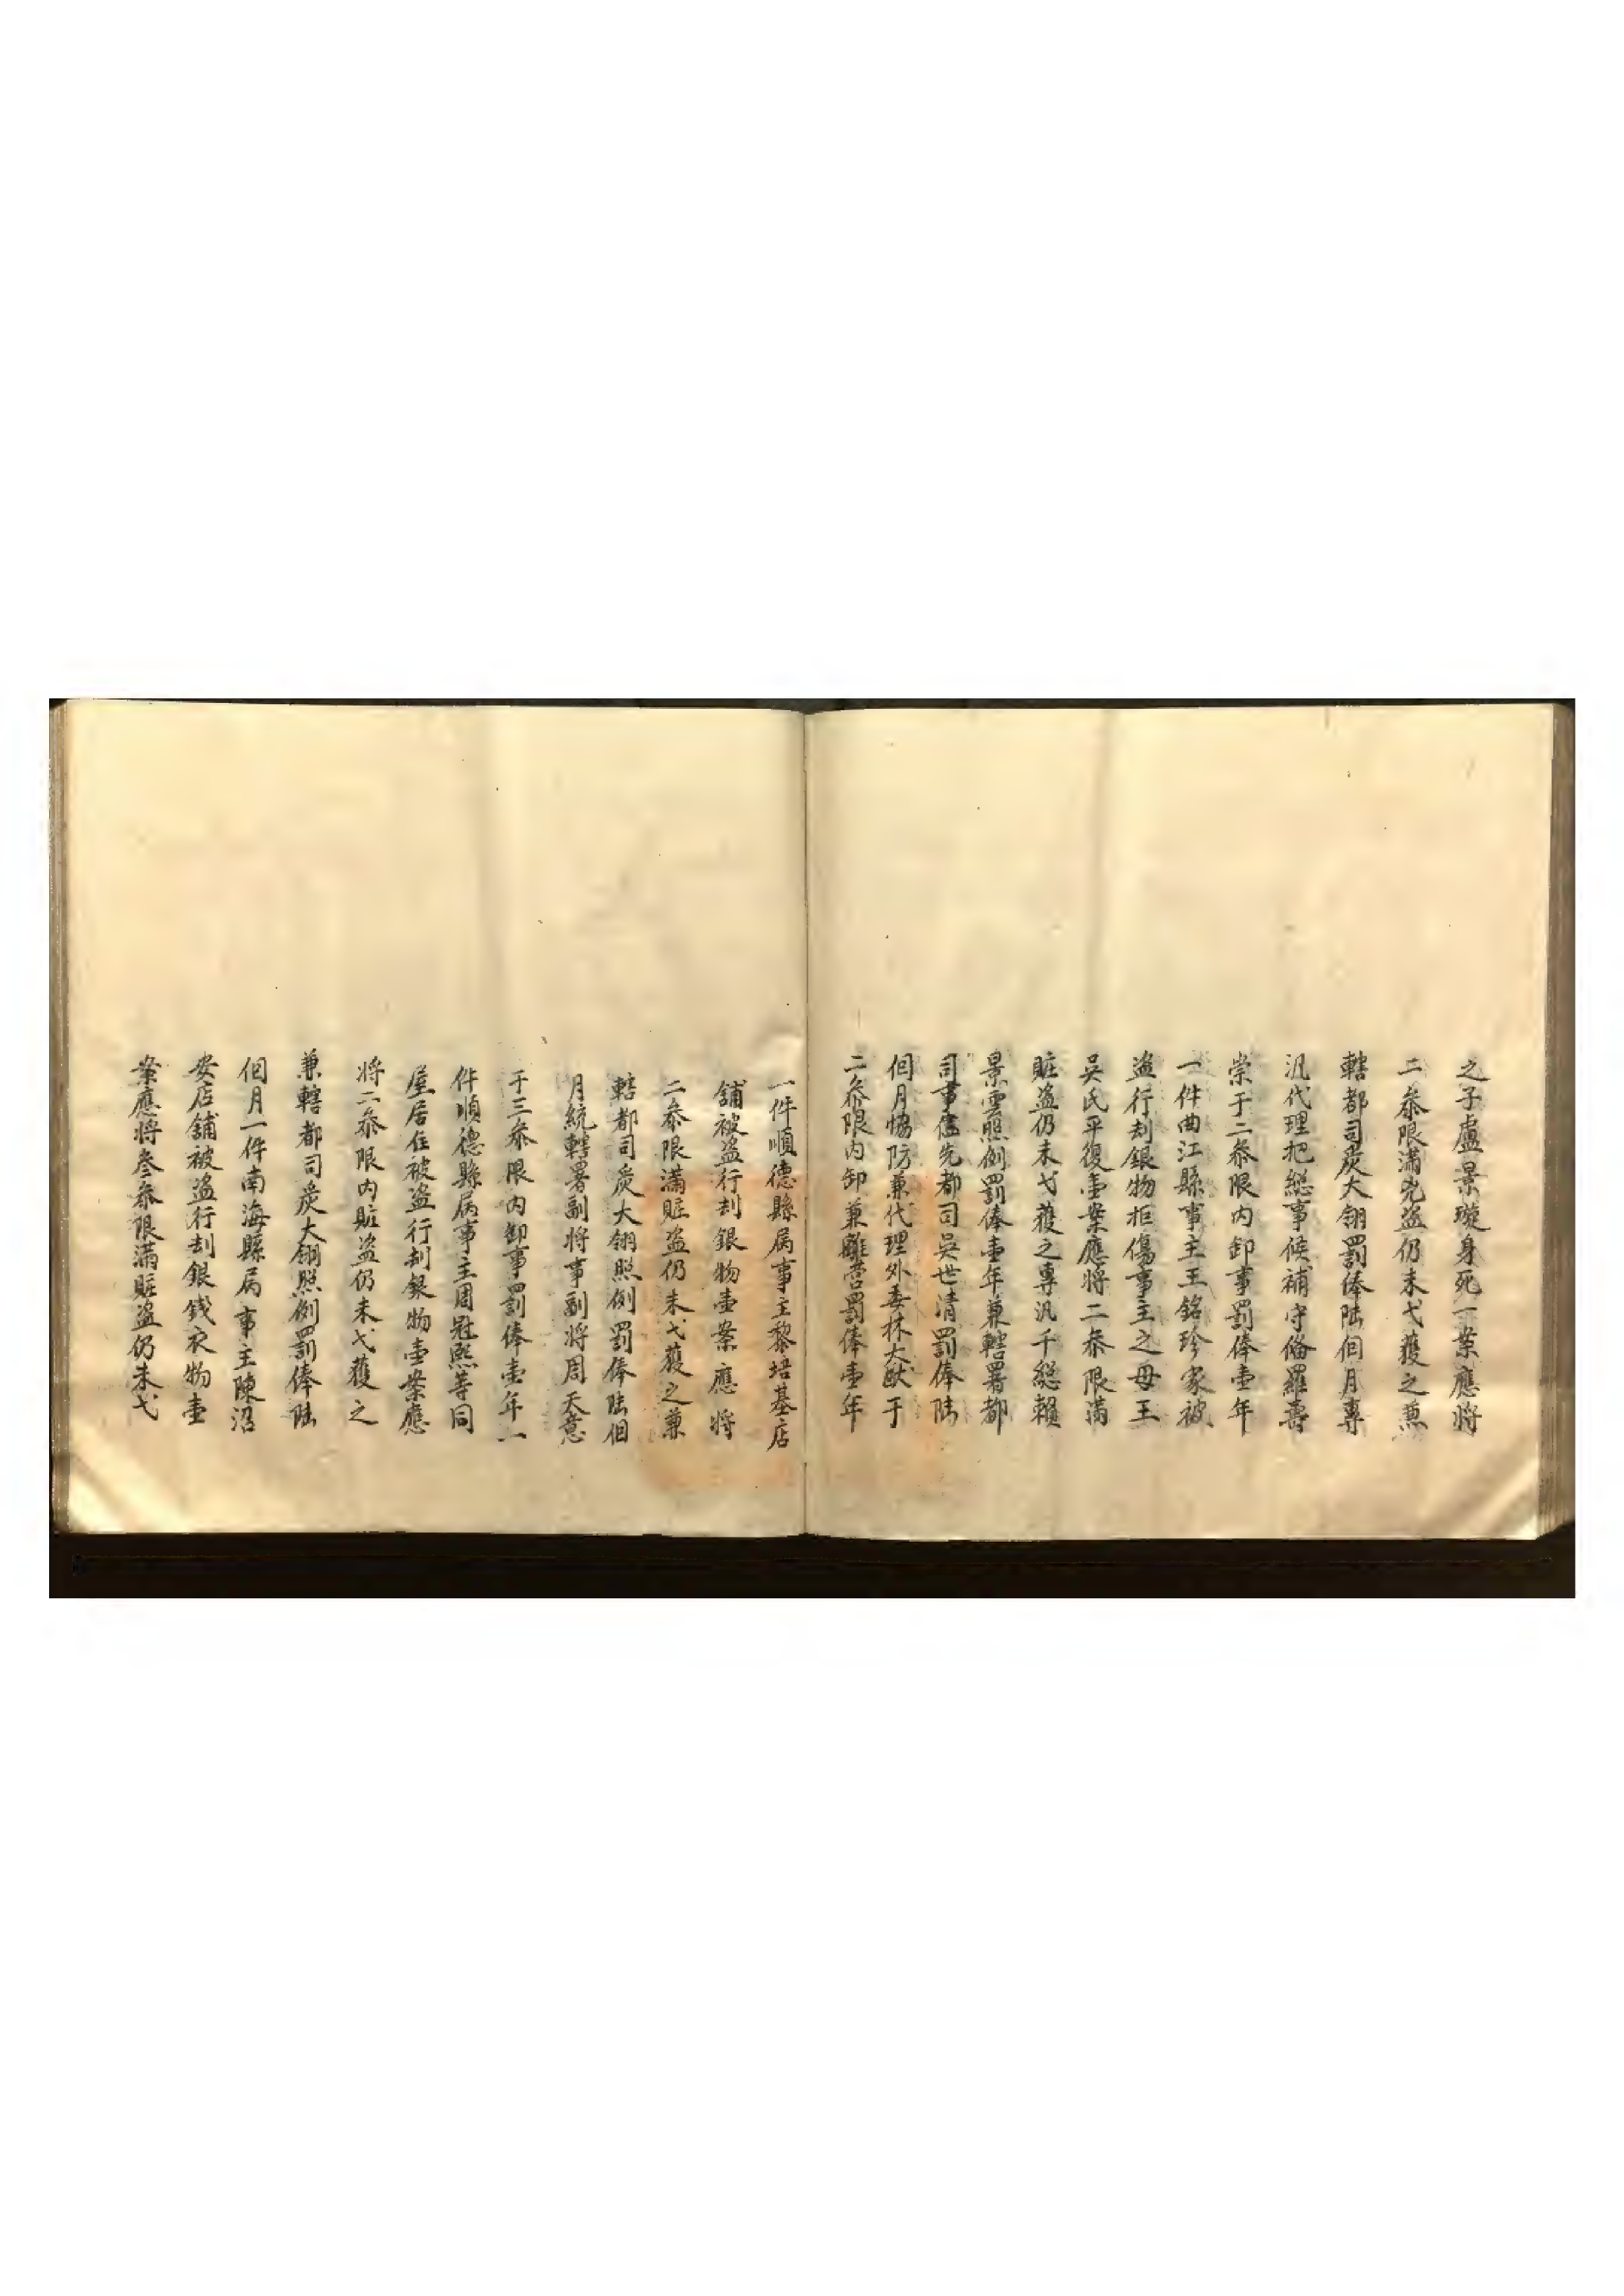 之子盧景璇身死一案應將
二叅限滿兇盗仍未弋獲之兼
轄都司炭大翎罰俸陸個月專
汛代理把総事候補守俻羅壽
崇于二叅限内卸事罰俸壹年
一件曲江縣事主王銘珍家被
盗行刦銀物拒傷事主之母王
吳氏平復壹案應將二叅限滿
賍盗仍未弋獲之專汛千総賴
景雲照例罰俸壹年兼轄署都
司事儘先都司吳世清罰俸陸
個月恊防兼代理外委林大猷于
二叅限内卸兼離營罰俸壹年
一件順德縣屙事主黎培基店
舖被盗行刦銀物壹案應將
二叅限滿賍盗仍未弋獲之兼
轄都司炭大翎照例罰俸陸個
月統轄署副將事副將周天意
于三叅限内卸事罰俸壹年一
件順德縣屙事主周冠熙等同
屋居住被盗行刦銀物壹案應
將二叅限内賍盗仍未弋獲之
兼轄都司炭大翎照例罰俸陸
個月一件南海縣屙事主陳沼
安店舖被盗行刦銀錢衣物壹
案應將叄叅限滿賍盗仍未弋